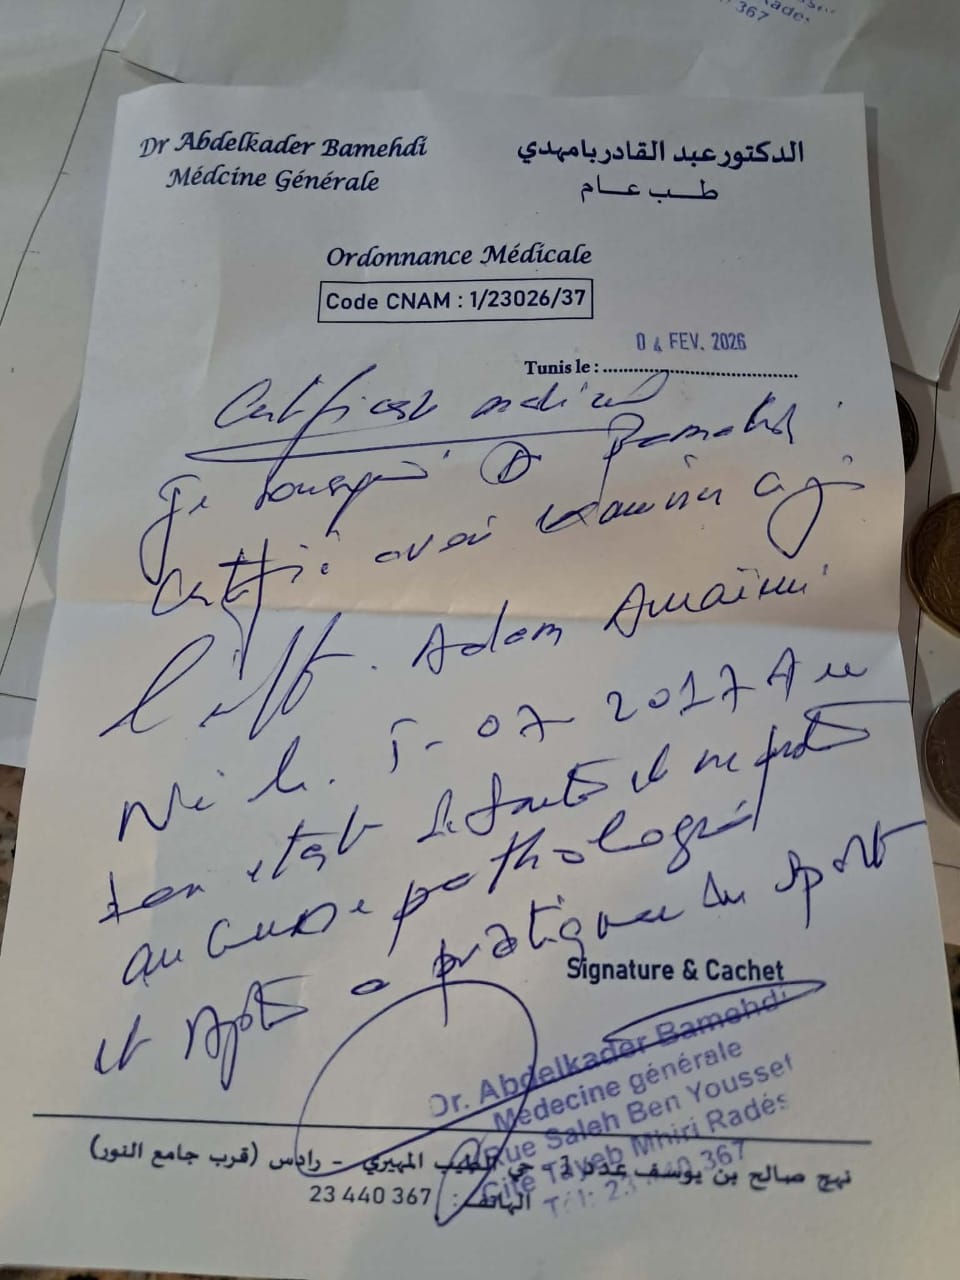 Dr Abdelkader Bamehdi
Médcine Générale
الدكتور عبد القادر بامهدي
طب عام
Ordonnance Médicale
Code CNAM : 1/23026/37
04 FEV. 2026
Tunis le :
Certificat médical
Je soussigné Dr Bamehdi
Certifie avoir examiner
Adam Amaïmi
Né le 5-07 2017
son état de santé il ne
aucune pathologie
et apte a pratiquer du sport
Signature & Cachet
Dr. Abdelkader Bamehdi
Médecine générale
Rue Saleh Ben Youssef
Cité Tayeb Mhiri Radés
Tél: 23 440 367
نهج صالح بن يوسف عدد حي الطيب المهيري - رادس (قرب جامع النور)
الهاتف : 23 440 367
367